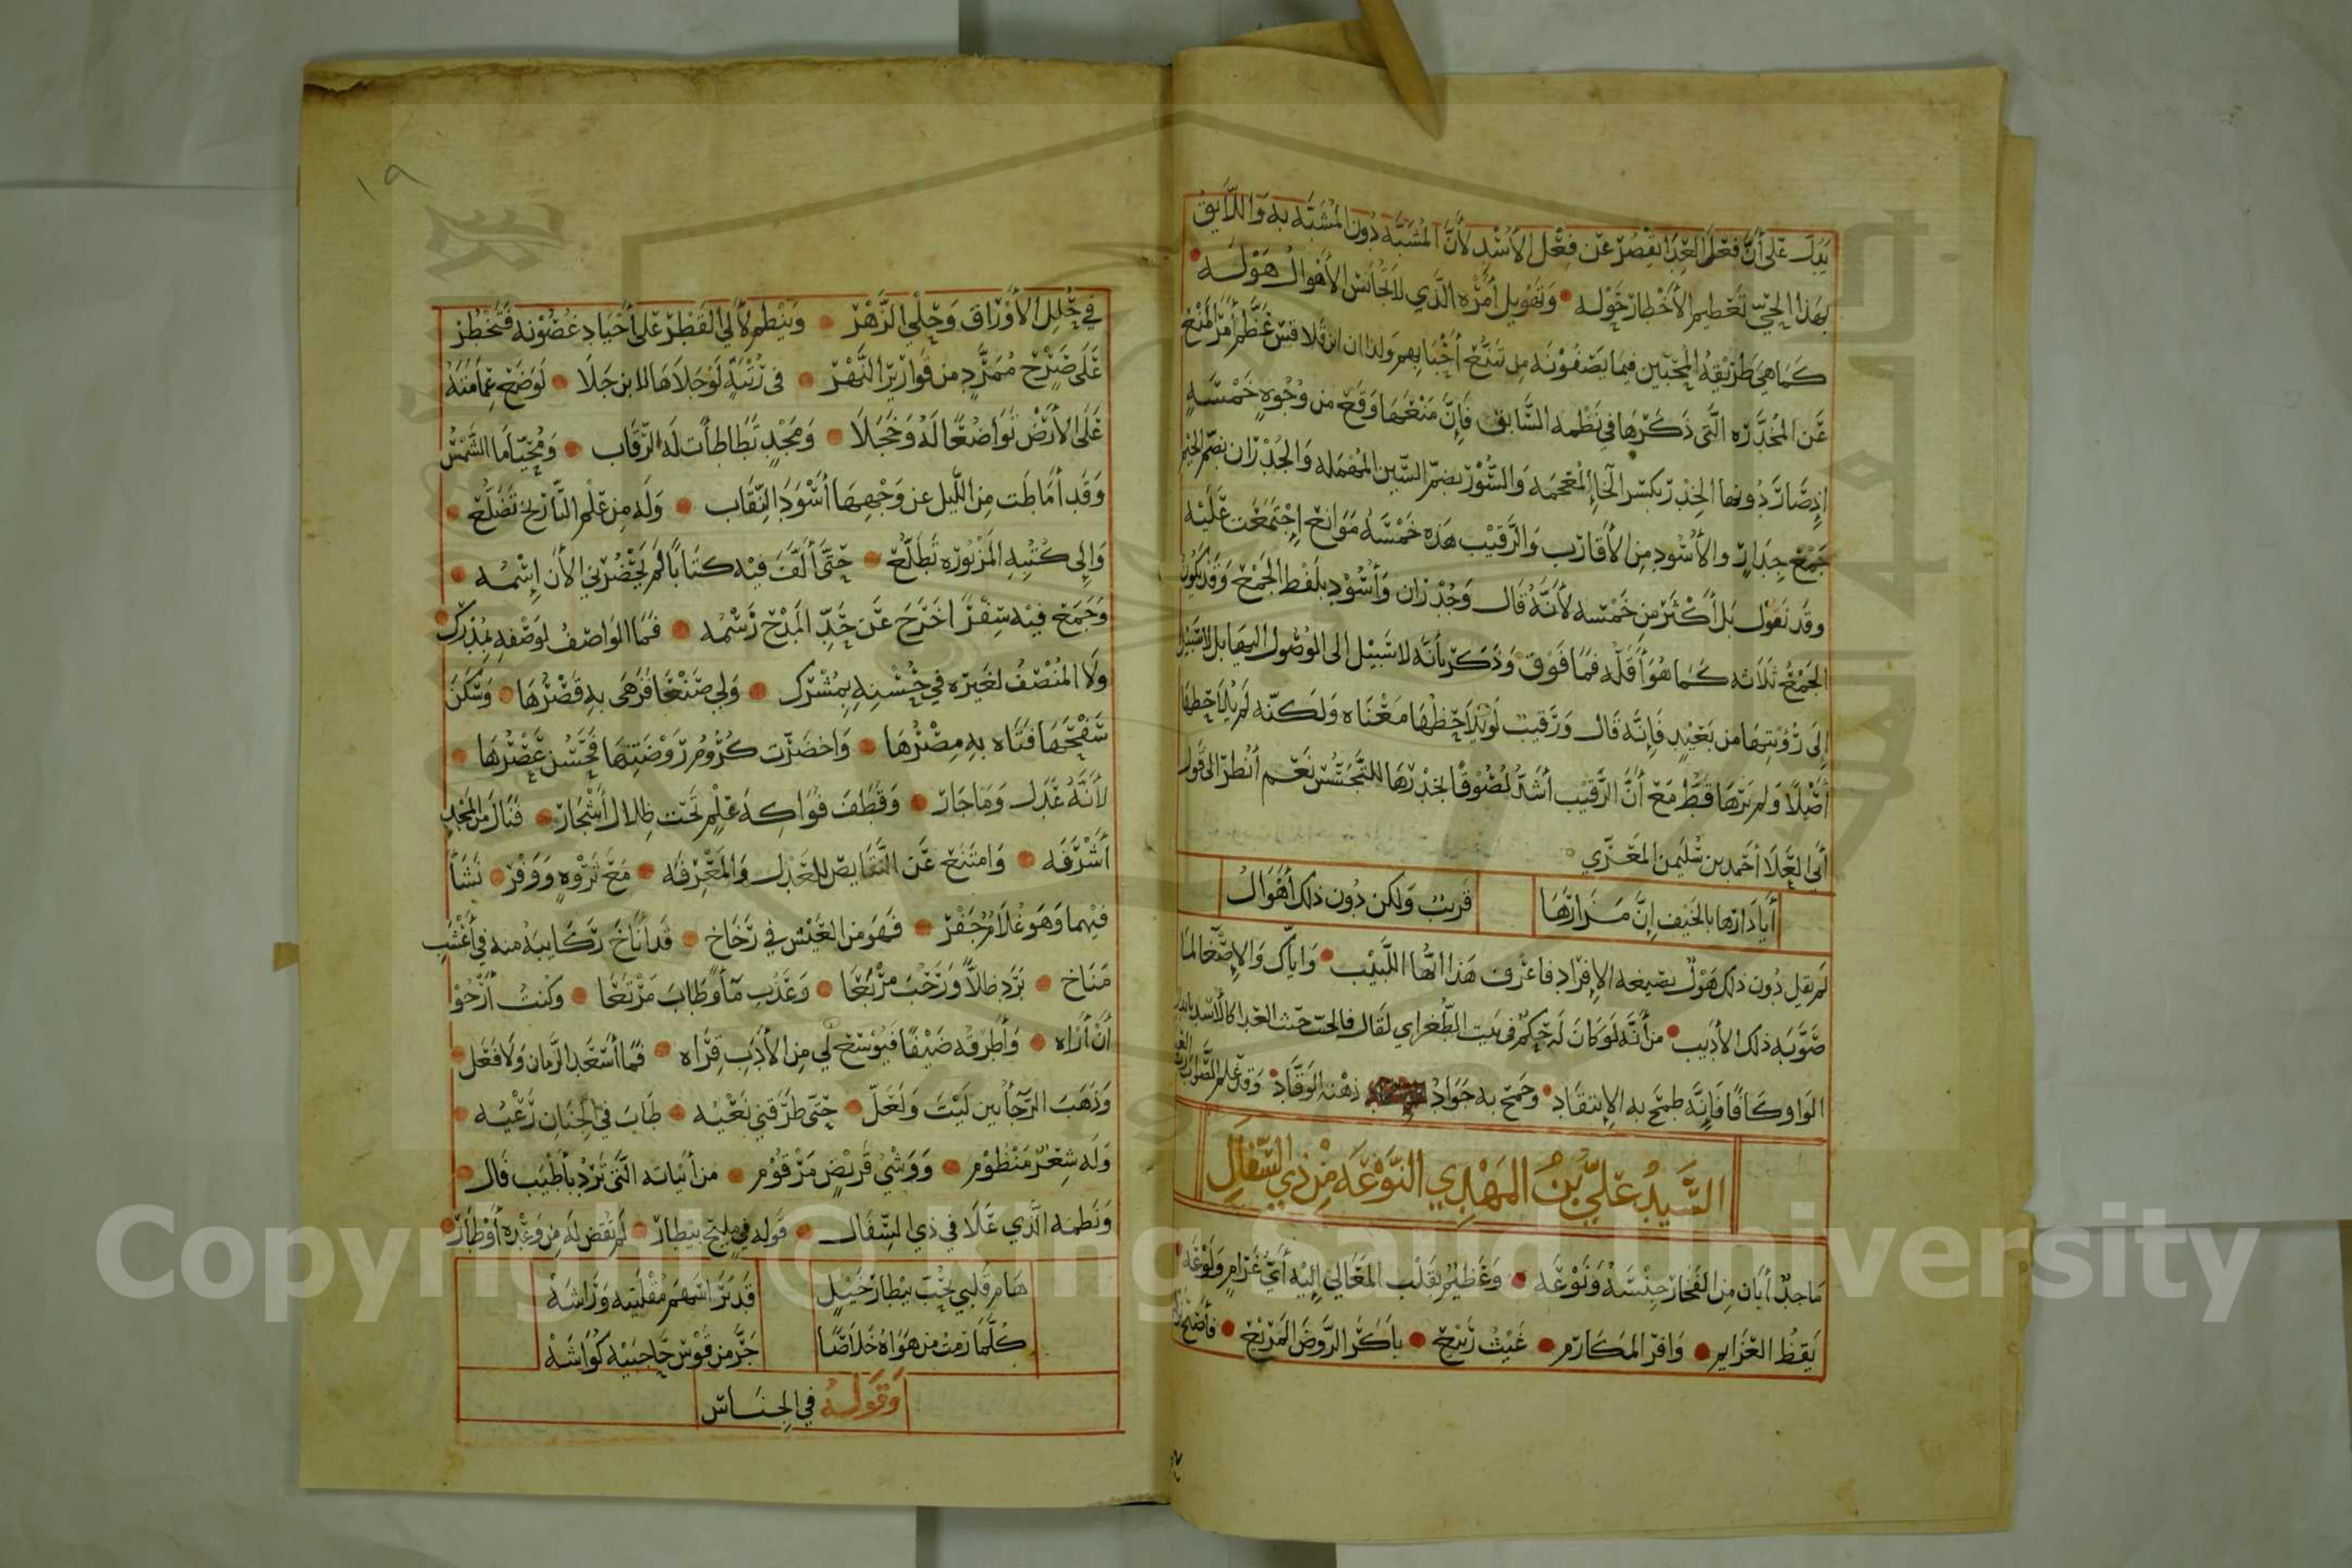 يدل على أن فعل العدا يقصر عن فعل الأسد لأن المشبه دون المشبه به واللايق
بهذا الحي تعظيم الأخطار حوله • وتهويل أمره الذي لا تجانس الأهوال هوله •
كما هي طريقة المحبين فيما يصفونه من تمنع أحبابهم ولذا ان ابن قلاقس عظم أمر المنع
عن المخدره التي ذكرها في نظمه السابق فإن منعها وقع من وجوه خمسة
إذ صار دونها الخدر بكسر الخاء المعجمه والسور بضم السين المهمله والجدران بضم الجيم
جمع جدار والأسود من الأقارب والرقيب هذه خمسه موانع إجتمعت عليه
وقد نقول بل أكثر من خمسه لأنه قال وجدران وأسود بلفظ الجمع وقد يكون
الجمع ثلاثه كما هو أقله فما فوق وذكر بأنه لا سبيل الى الوصول اليها بل لا سبيل
إلى رؤيتها من بعيد فإنه قال ورقيب لو يلاحظها معناه ولكنه لم يلاحظها
أصلا ولم يرها قط مع أن الرقيب أشد لصوقا بخدرها للتجسس نعم أنظر الى قول
أبي العلا أحمد بن سليمن المعري
أيا دارها بالخيف إن مزارها قريب ولكن دون ذلك أهوال
لم يقل دون ذلك هول بصيغه الإفراد فاعرف هذا ايها اللبيب • واياك والإصغا لما
صوبه ذلك الأديب • من أنه لو كان له حكم في بيت الطغراي لقال فالحب حيث العدا كالأسد بابدال
الواو كافا فإنه طمح به الإنتقاد • وجمح به جواد ذهنه الوقاد • وقد علم الصواب
السيد علي بن المهدي النوعه من ذي السفال
ماجد أبان من الفخار جنسه ونوعه • وعظيم بقلب المعالي إليه أي غرام ولوعه
يقظ العزايم • وافر المكارم • غيث ربيع • باكر الروض المريع • فأضحى
١٩
في حلل الأوراق وحلي الزهر • وينظم لآلي القطر على أجياد غصونه فتخطر
على صرح ممرد من قوارير النهر • في رتبة لو جلاها لابن جلا • لوضع عمامته
على الأرض تواضعا له وخجلا • ومجد تطاطأت له الرقاب • ومحيا ما الشمس
وقد أماطت من الليل عن وجهها أسود النقاب • وله من علم التاريخ تضلع •
وإلى كتبه المزبوره تطلع • حتى ألف فيه كتابا لم يحضرني الأن إسمه •
وجمع فيه سفرا خرج عن حد المدح رسمه • فما الواصف لوصفه بمدرك •
ولا المنصف لغيره في حسنه بمشرك • ولي صنعا فزهى به قصرها • وسكن
سفحها فتاه به مصرها • واخضرت كروم روضتها فحسن عصرها •
لأنه عدل وما جار • وقطف فواكه علم تحت ظلال أشجار • فنال من المجد
أشرفه • وامتنع عن النقايص للعدل والمعرفه • مع ثروه ووفر • نشأ
فيهما وهو غلام جفر • فهو من العيش في رخاخ • قد أناخ ركايبه منه في أعشب
مناخ • برد ظلا ورحب مربعا • وعذب مآ وطاب مرتعا • وكنت أرجو
أن أراه • وأطرقه ضيفا فيوسع لي من الأدب قراه • فما أسعد الزمان ولا فعل •
وذهب الرجا بين ليت ولعل • حتى طرقني نعيه • طاب في الجنان رعيه •
وله شعر منظوم • ووشي قريض مرقوم • من أبياته التي ترد بأطيب قال •
ونظمه الذي علا في ذي السفال • قوله في مليح بيطار • لم تقض له من وعده أوطار •
هام قلبي بحب بيطار خيل قد برا اسهم مقلتيه وراشه
كلما رمت من هواه خلاصا جر من قوس حاجبيه كواشه
وقوله في الجناس
Copyright © King Saud University